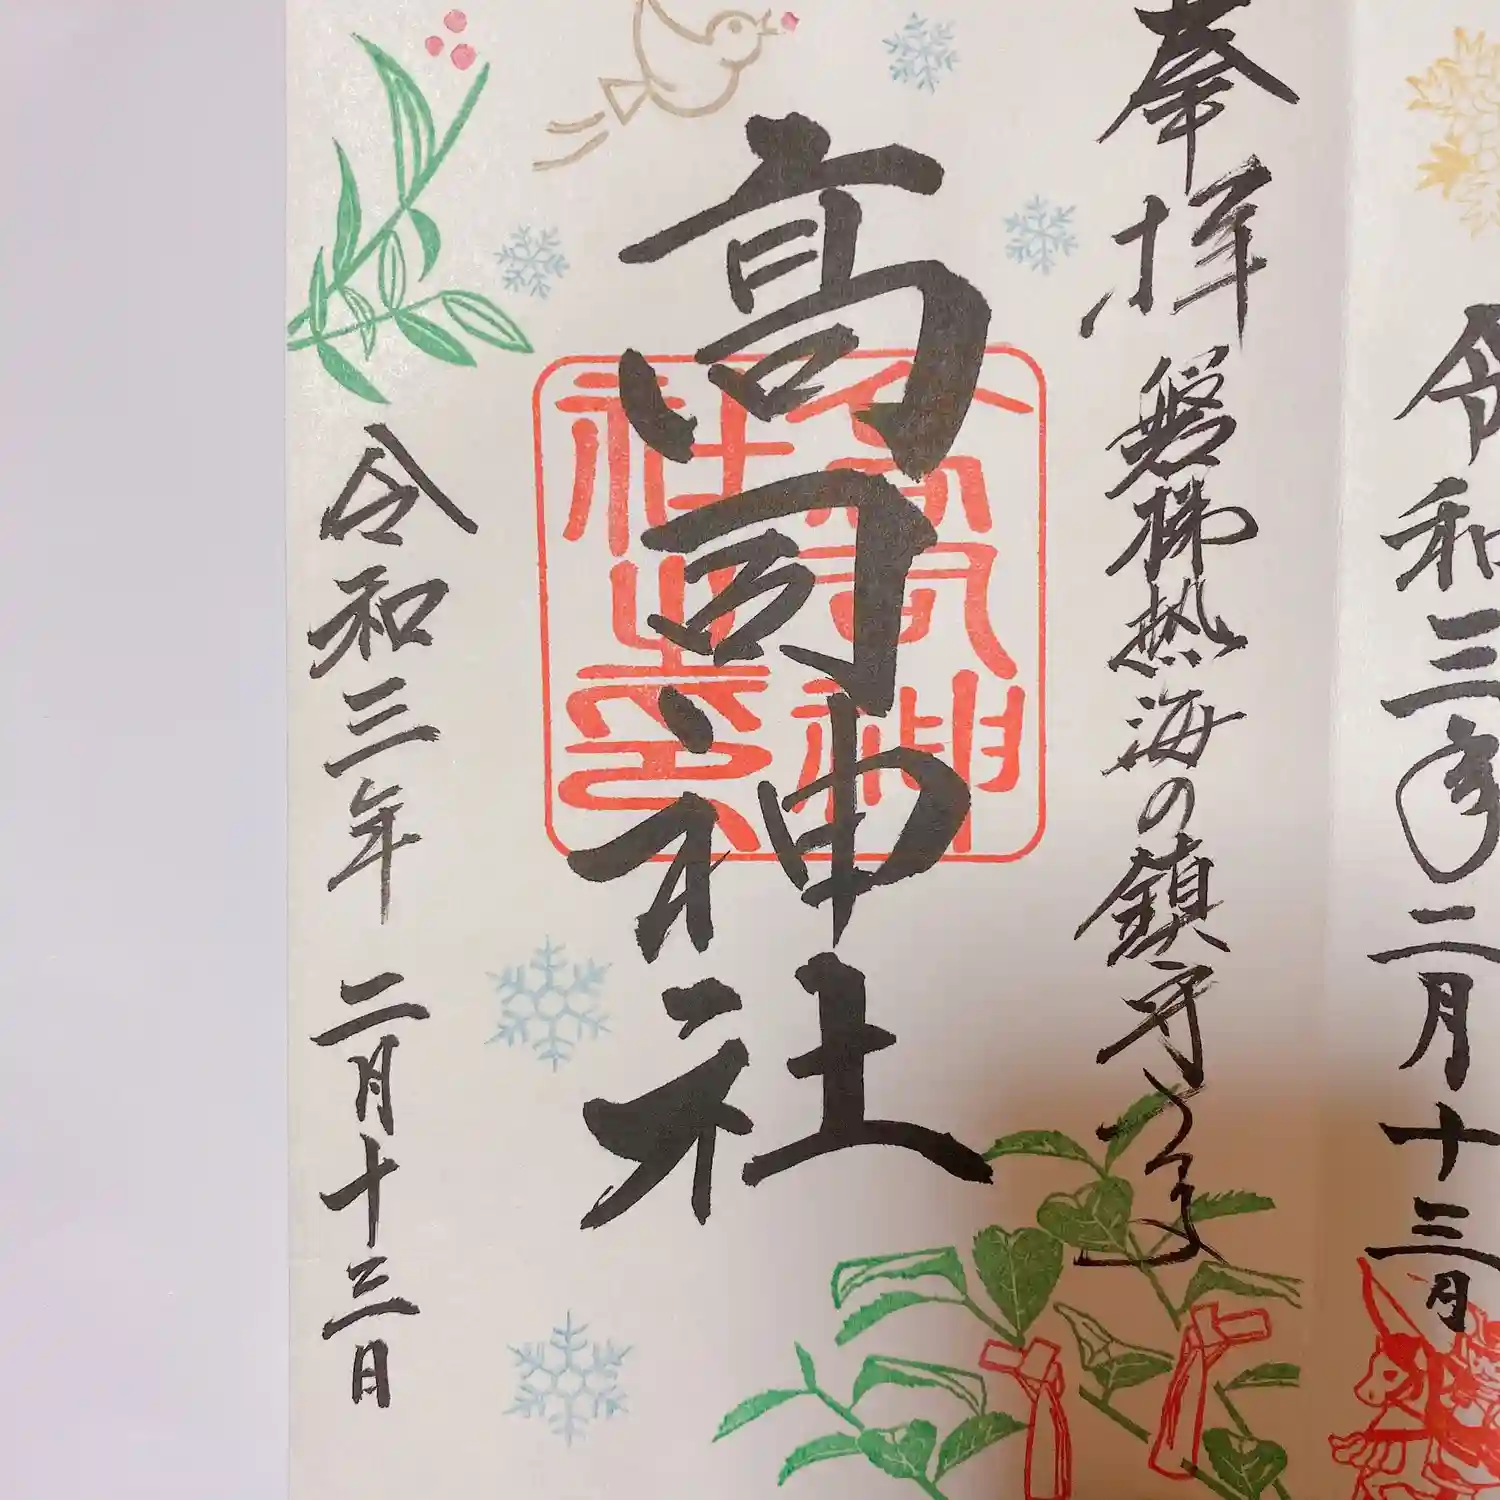 令和三年二月十三日
奉拝
磐梯熱海の鎮守さま
高司神社
高司神社之印
令和三年 二月十三日